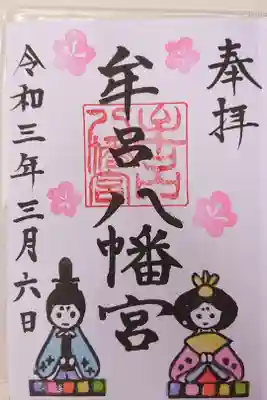 奉拝
牟呂八幡宮
令和三年三月六日
牟呂八幡宮